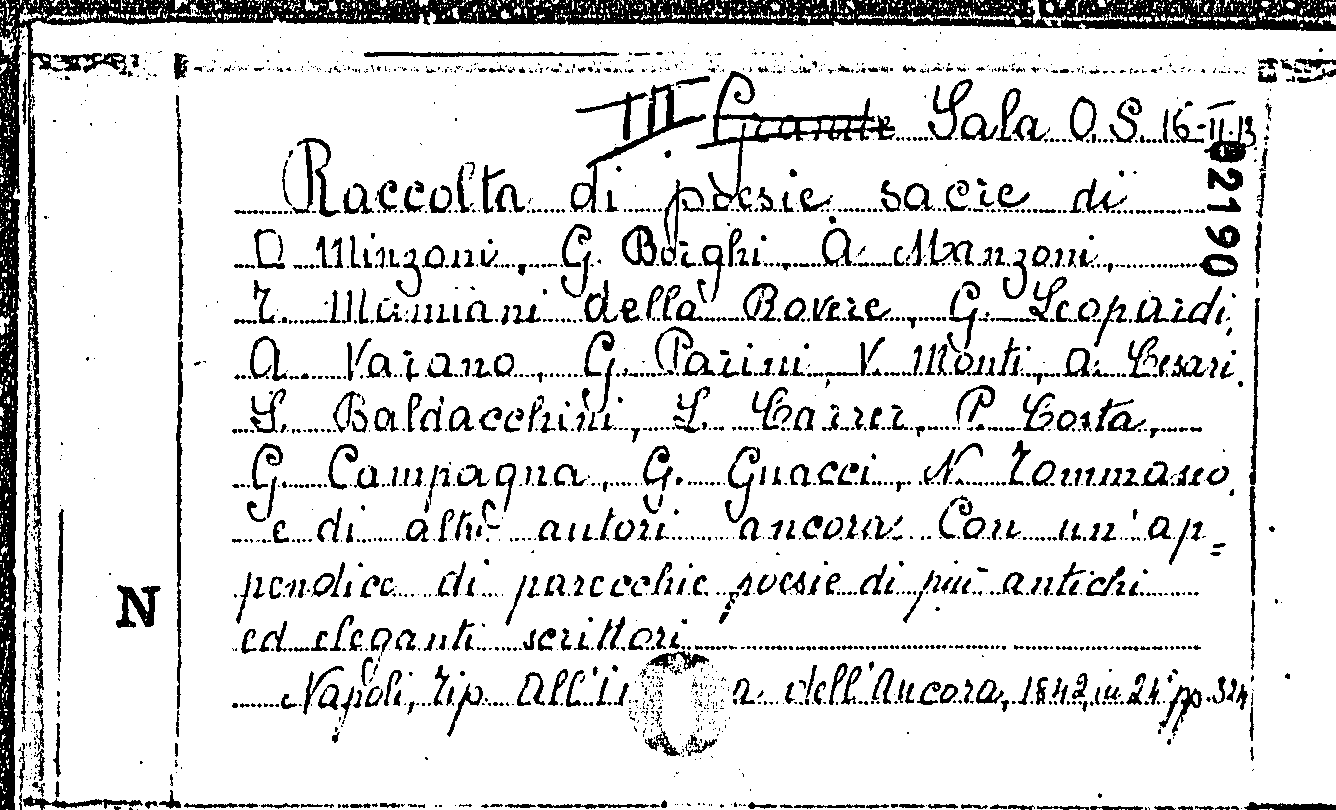 III Grande Sala O. S. 16-II-13
02190
Raccolta di poesie sacre di
O Minzoni, G. Borghi, A. Manzoni,
T. Mamiani della Rovere, G. Leopardi,
A. Varano, G. Parini, V. Monti, A. Cesari,
S. Baldacchini, L. Carrer, P. Costa,
G. Campagna, G. Guacci, N. Tommaseo,
e di altri autori ancora. Con un'ap=
pendice di parecchie poesie di più antichi
ed eleganti scrittori
N
Napoli, Tip. All' dell'Ancora, 1842, in 24° pp. 324